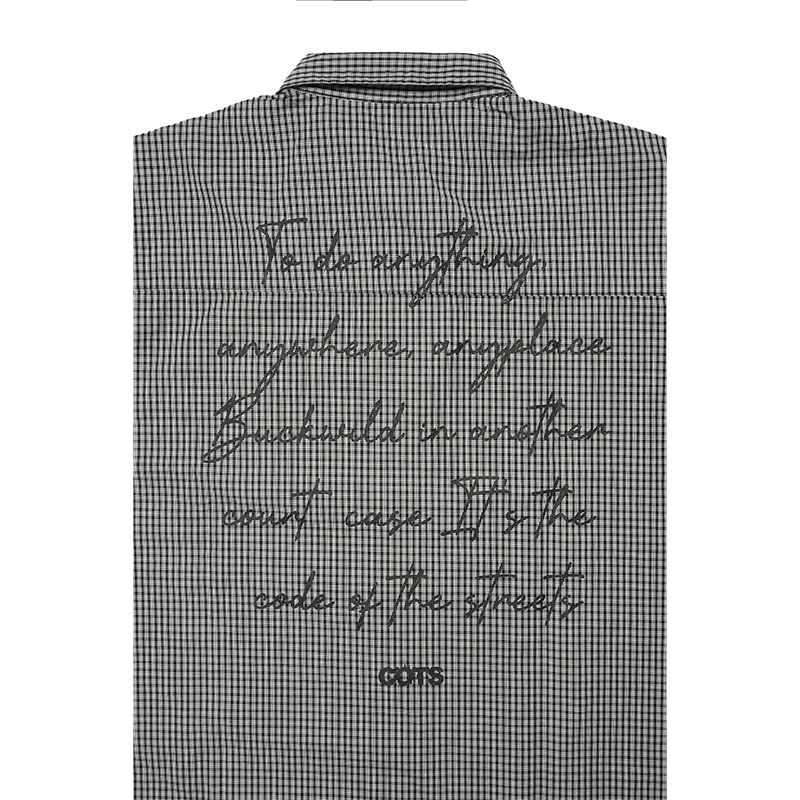 To do anything.
anywhere, anyplace
Buckwild in another
court case It's the
code of the streets
COTS